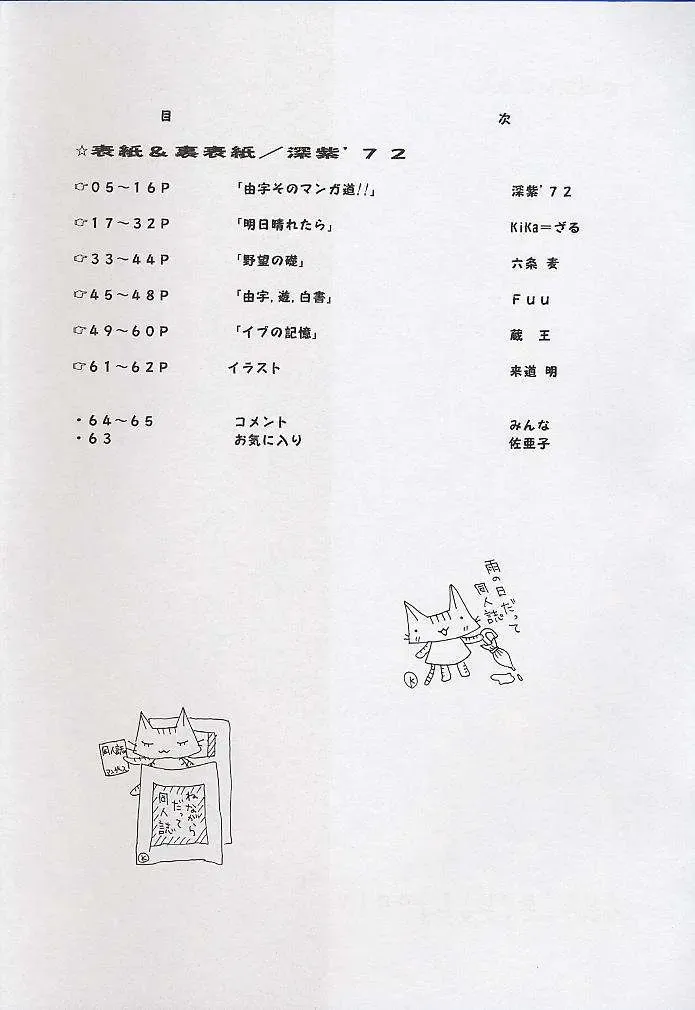 目 次
☆表紙＆裏表紙／深紫’７２
☞０５～１６Ｐ 「由宇そのマンガ道!!」 深紫’７２
☞１７～３２Ｐ 「明日晴れたら」 KiKa＝ざる
☞３３～４４Ｐ 「野望の礎」 六条 麦
☞４５～４８Ｐ 「由宇，遊，白書」 Ｆｕｕ
☞４９～６０Ｐ 「イブの記憶」 蔵 王
☞６１～６２Ｐ イラスト 来道 明
・６４～６５ コメント みんな
・６３ お気に入り 佐亜子
雨の日だって
同人誌。
K
同人誌
ねながら
だって
同人誌
K